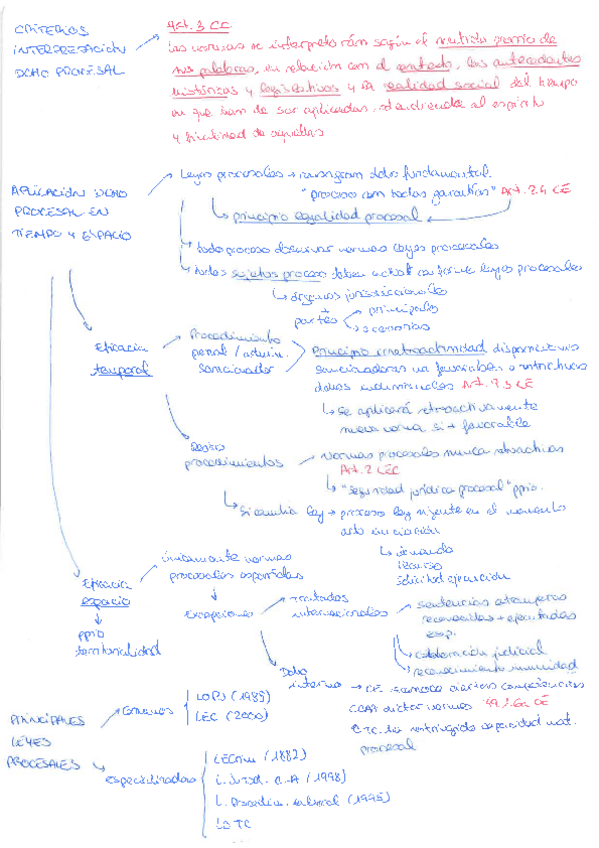 CRITERIOS
INTERPRETACIÓN
DCHO PROCESAL
Art. 3 CC
Las normas se interpretarán según el sentido propio de
sus palabras, en relación con el contexto, los antecedentes
históricos y legislativos y la realidad social del tiempo
en que han de ser aplicadas, atendiendo al espíritu
y finalidad de aquellas
APLICACIÓN DCHO
PROCESAL EN
TIEMPO Y ESPACIO
Leyes procesales → consagran dcho fundamental
"proceso con todas garantías" Art. 24 CE
principio legalidad procesal
todo proceso observar normas leyes procesales
todos sujetos proceso deben actuar conforme leyes procesales
órganos jurisdiccionales
partes
principales
accesorias
Eficacia
temporal
Procedimiento
penal / admin.
sancionador
Principio irretroactividad disposiciones
sancionadoras no favorables o restrictivas
dchos individuales Art. 9.3 CE
se aplicará retroactivamente
nueva norma si + favorable
Resto
procedimientos
normas procesales nunca retroactivas
Art. 2 LEC
"seguridad jurídica procesal" ppio.
Si cambia ley → proceso ley vigente en el momento
acto iniciación
demanda
recurso
solicitud ejecución
Eficacia
espacio
ppio
territorialidad
únicamente normas
procesales españolas
Excepciones
Tratados
internacionales
sentencias extranjeras
reconocidas + ejecutadas
esp.
colaboración judicial
reconocimiento inmunidad
Dcho
interno
→ CE
competencias
CCAA dictar normas 149.1.6a CE
TC ha restringido capacidad
procesal
PRINCIPALES
LEYES
PROCESALES
comunes
LOPJ (1985)
LEC (2000)
especializadas
LECrim (1882)
L. Jurisd. C-A (1998)
L. Procedim. Laboral (1995)
LOTC